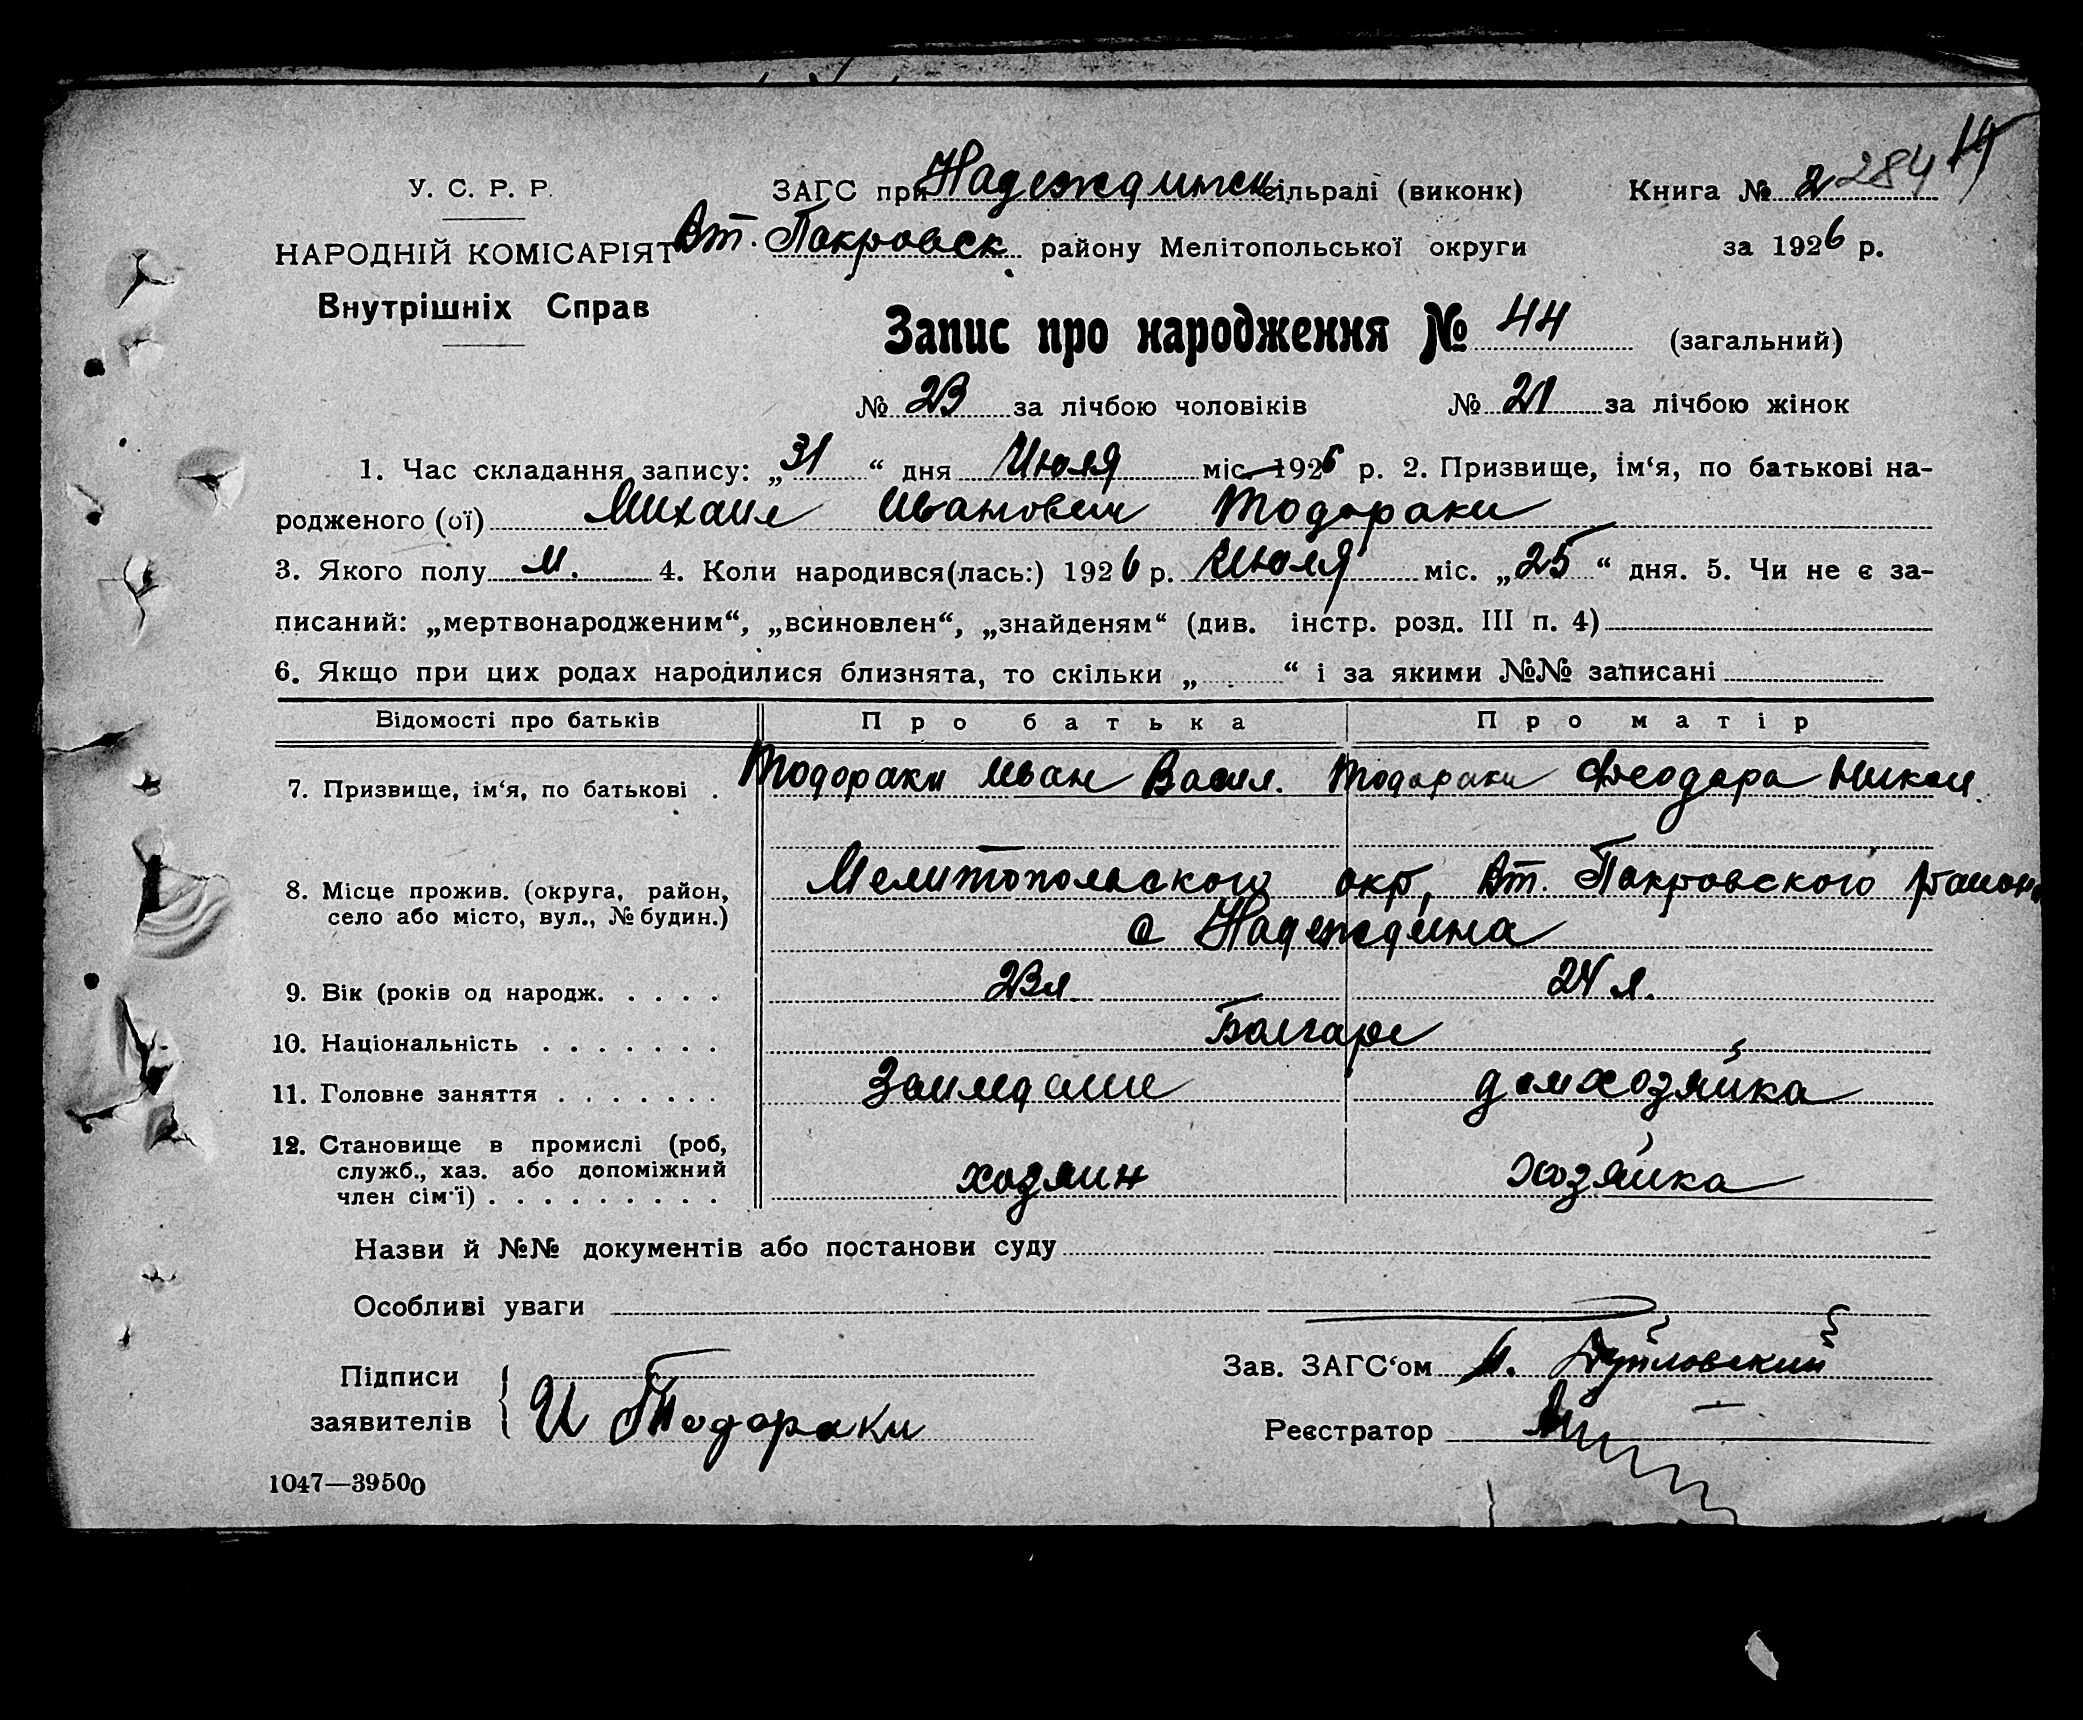 284 44
У. С. Р. Р. ЗАГС при Надеждинск сільраді (виконк) Книга № 2
НАРОДНІЙ КОМІСАРІЯТ Вт. Покровск. району Мелітопольської округи за 1926 р.
Внутрішніх Справ
Запис про народження № 44 (загальний)
№ 23 за лічбою чоловіків № 21 за лічбою жінок
1. Час складання запису: „31“ дня Июля міс. 1926 р. 2. Призвище, ім‘я, по батькові на-
родженого (ої) Михаил Иванович Тодораки
3. Якого полу М. 4. Коли народився(лась:) 1926 р. Июля міс. „25“ дня. 5. Чи не є за-
писаний: „мертвонародженим“, „всиновлен“, „знайденям“ (див. інстр. розд. III п. 4)
6. Якщо при цих родах народилися близнята, то скільки „ “ і за якими №№ записані
Відомості про батьків Про батька Про матір
7. Призвище, ім‘я, по батькові . Тодораки Иван Васил. Тодораки Феодора Никол.
8. Місце прожив. (округа, район, Мелитопольского окр, Вт. Покровского района
село або місто, вул., № будин.) с Надеждина
9. Вік (років од народж. . . . . 23 л 24 л.
10. Національність . . . . . . . Болгаре
11. Головне заняття . . . . . . . домхозяйка
12. Становище в промислі (роб,
служб., хаз. або допоміжний
член сім‘ї) . . . . . . . . . хозяин хозяйка
Назви й №№ документів або постанови суду
Особливі уваги
Підписи Зав. ЗАГС‘ом
заявителів И Тодораки Реєстратор
1047—39500